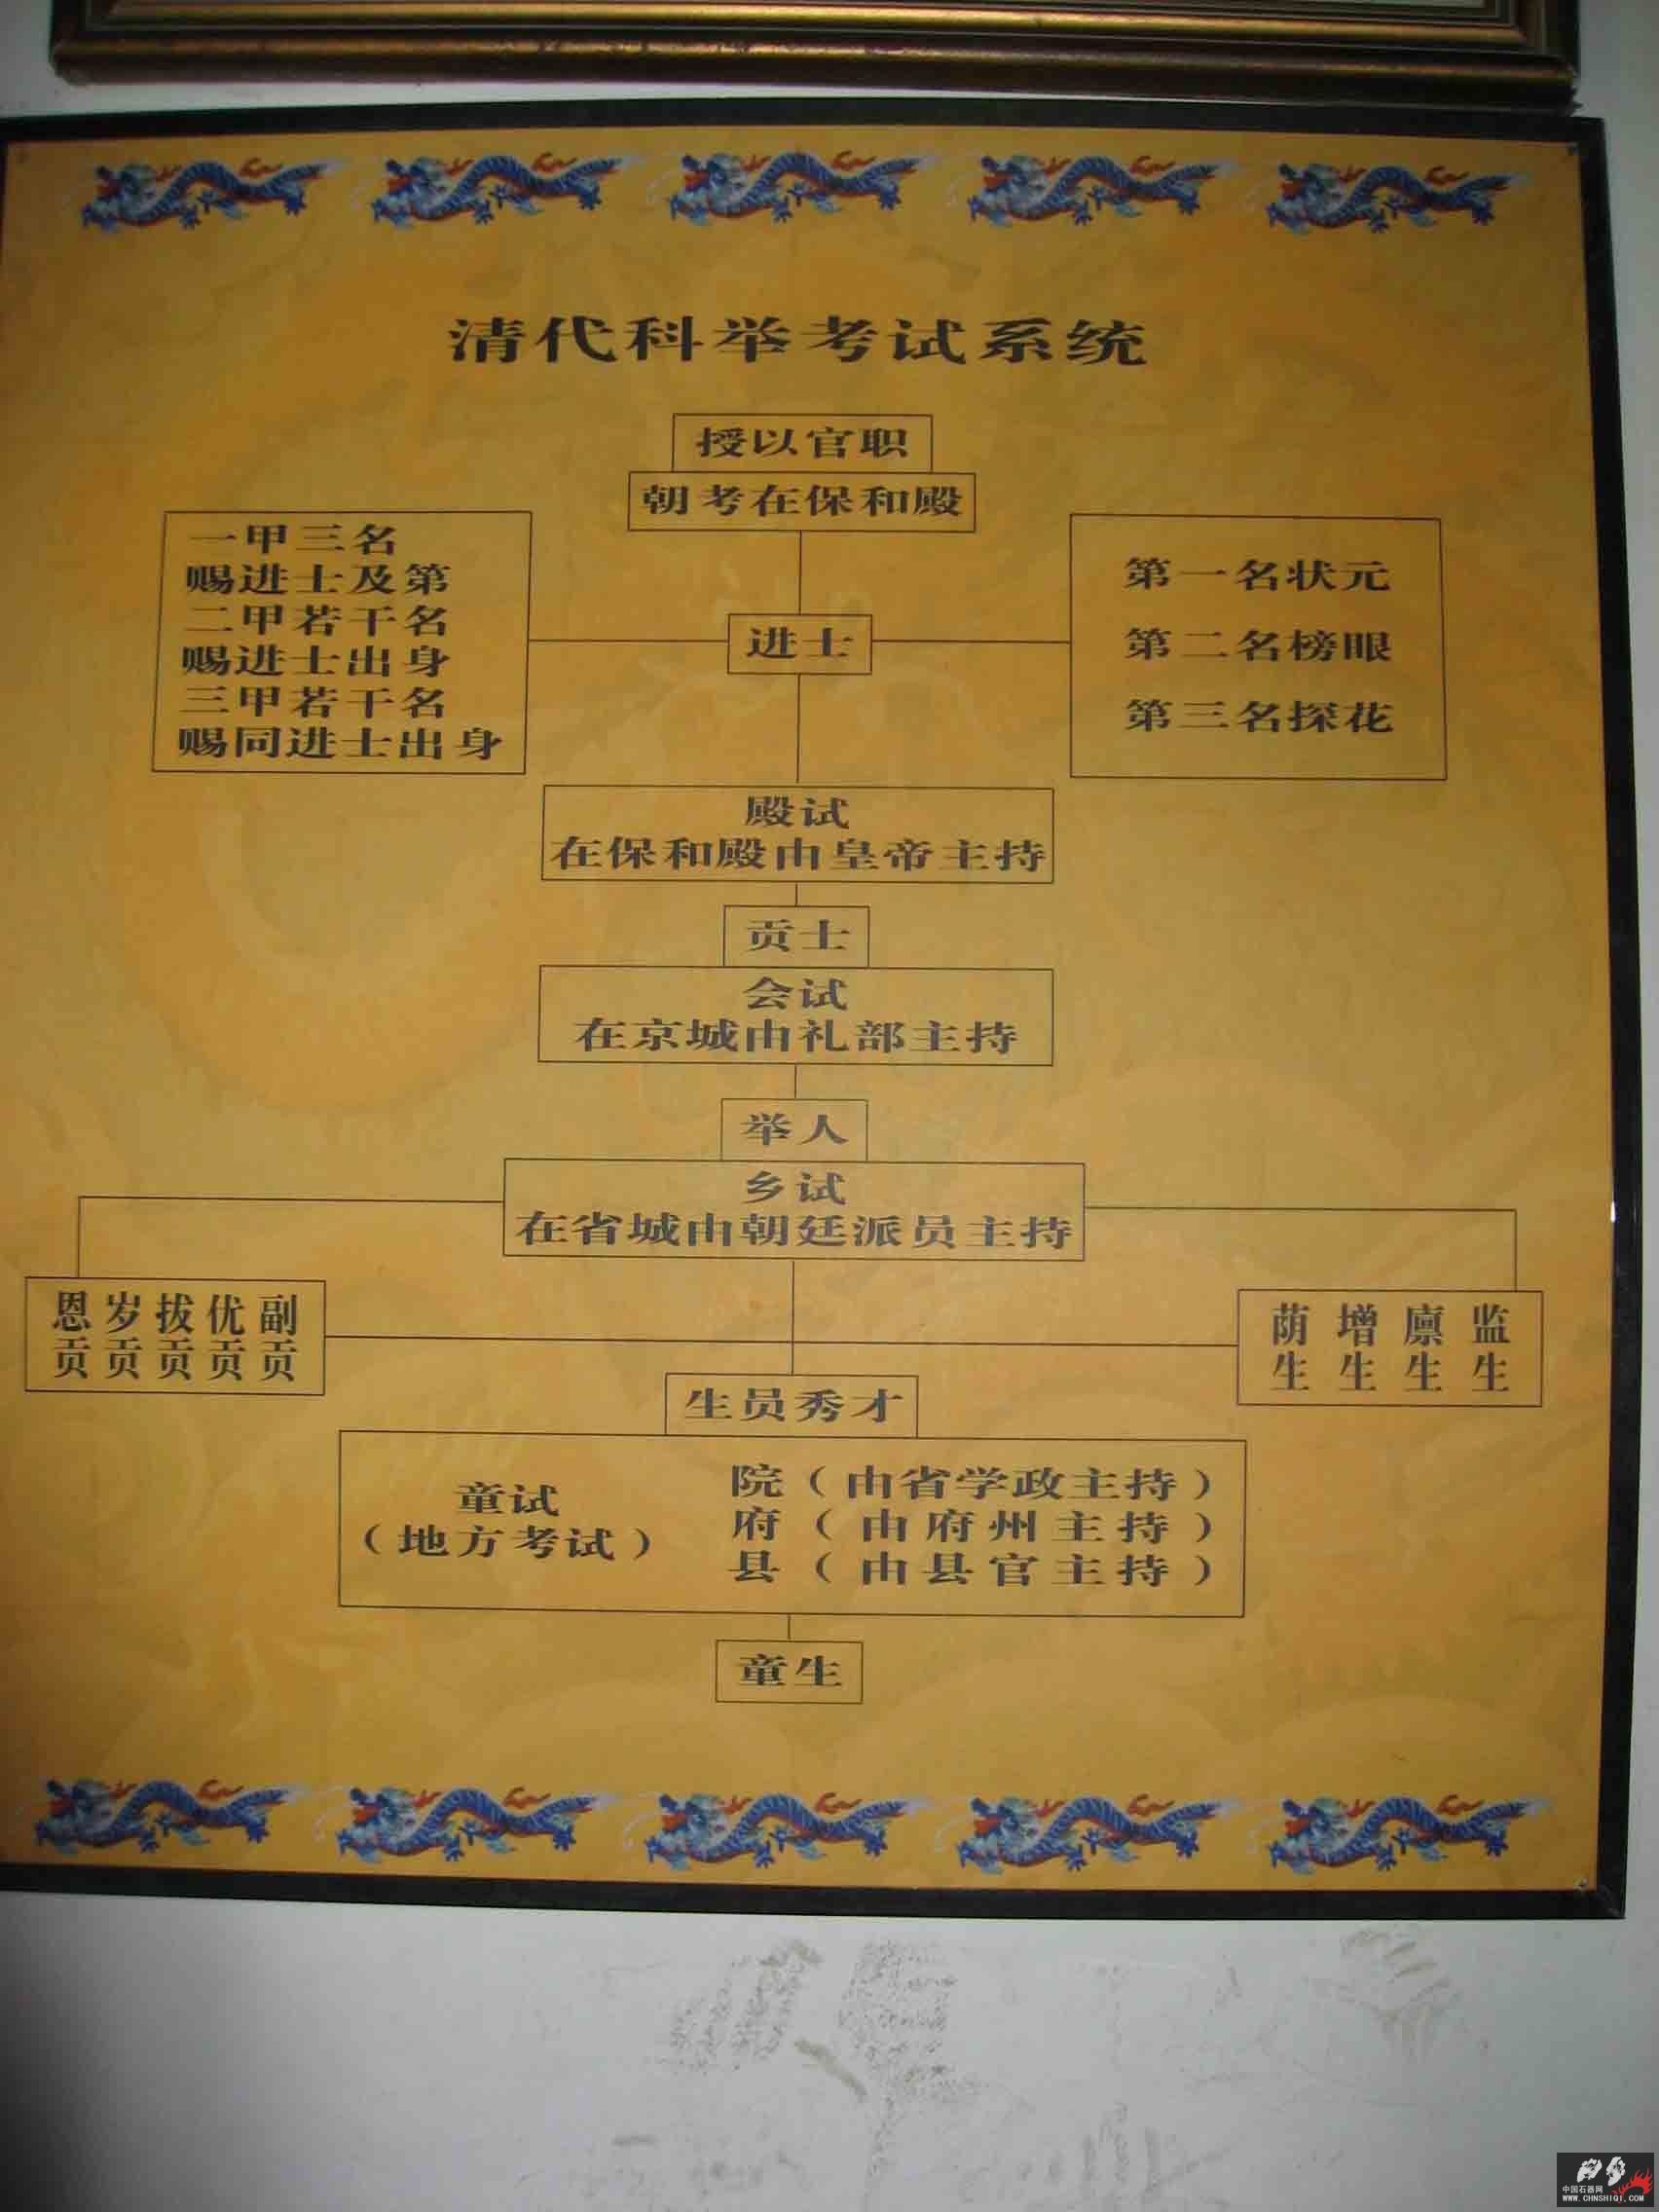 清代科举考试系统
授以官职
朝考在保和殿
一甲三名
赐进士及第
二甲若干名
赐进士出身
三甲若干名
赐同进士出身
进士
第一名状元
第二名榜眼
第三名探花
殿试
在保和殿由皇帝主持
贡士
会试
在京城由礼部主持
举人
乡试
在省城由朝廷派员主持
恩贡 岁贡 拔贡 优贡 副贡
荫生 增生 廪生 监生
生员秀才
童试
（地方考试）
院（由省学政主持）
府（由府州主持）
县（由县官主持）
童生
中国石器网
WWW.CHNSHIQI.COM